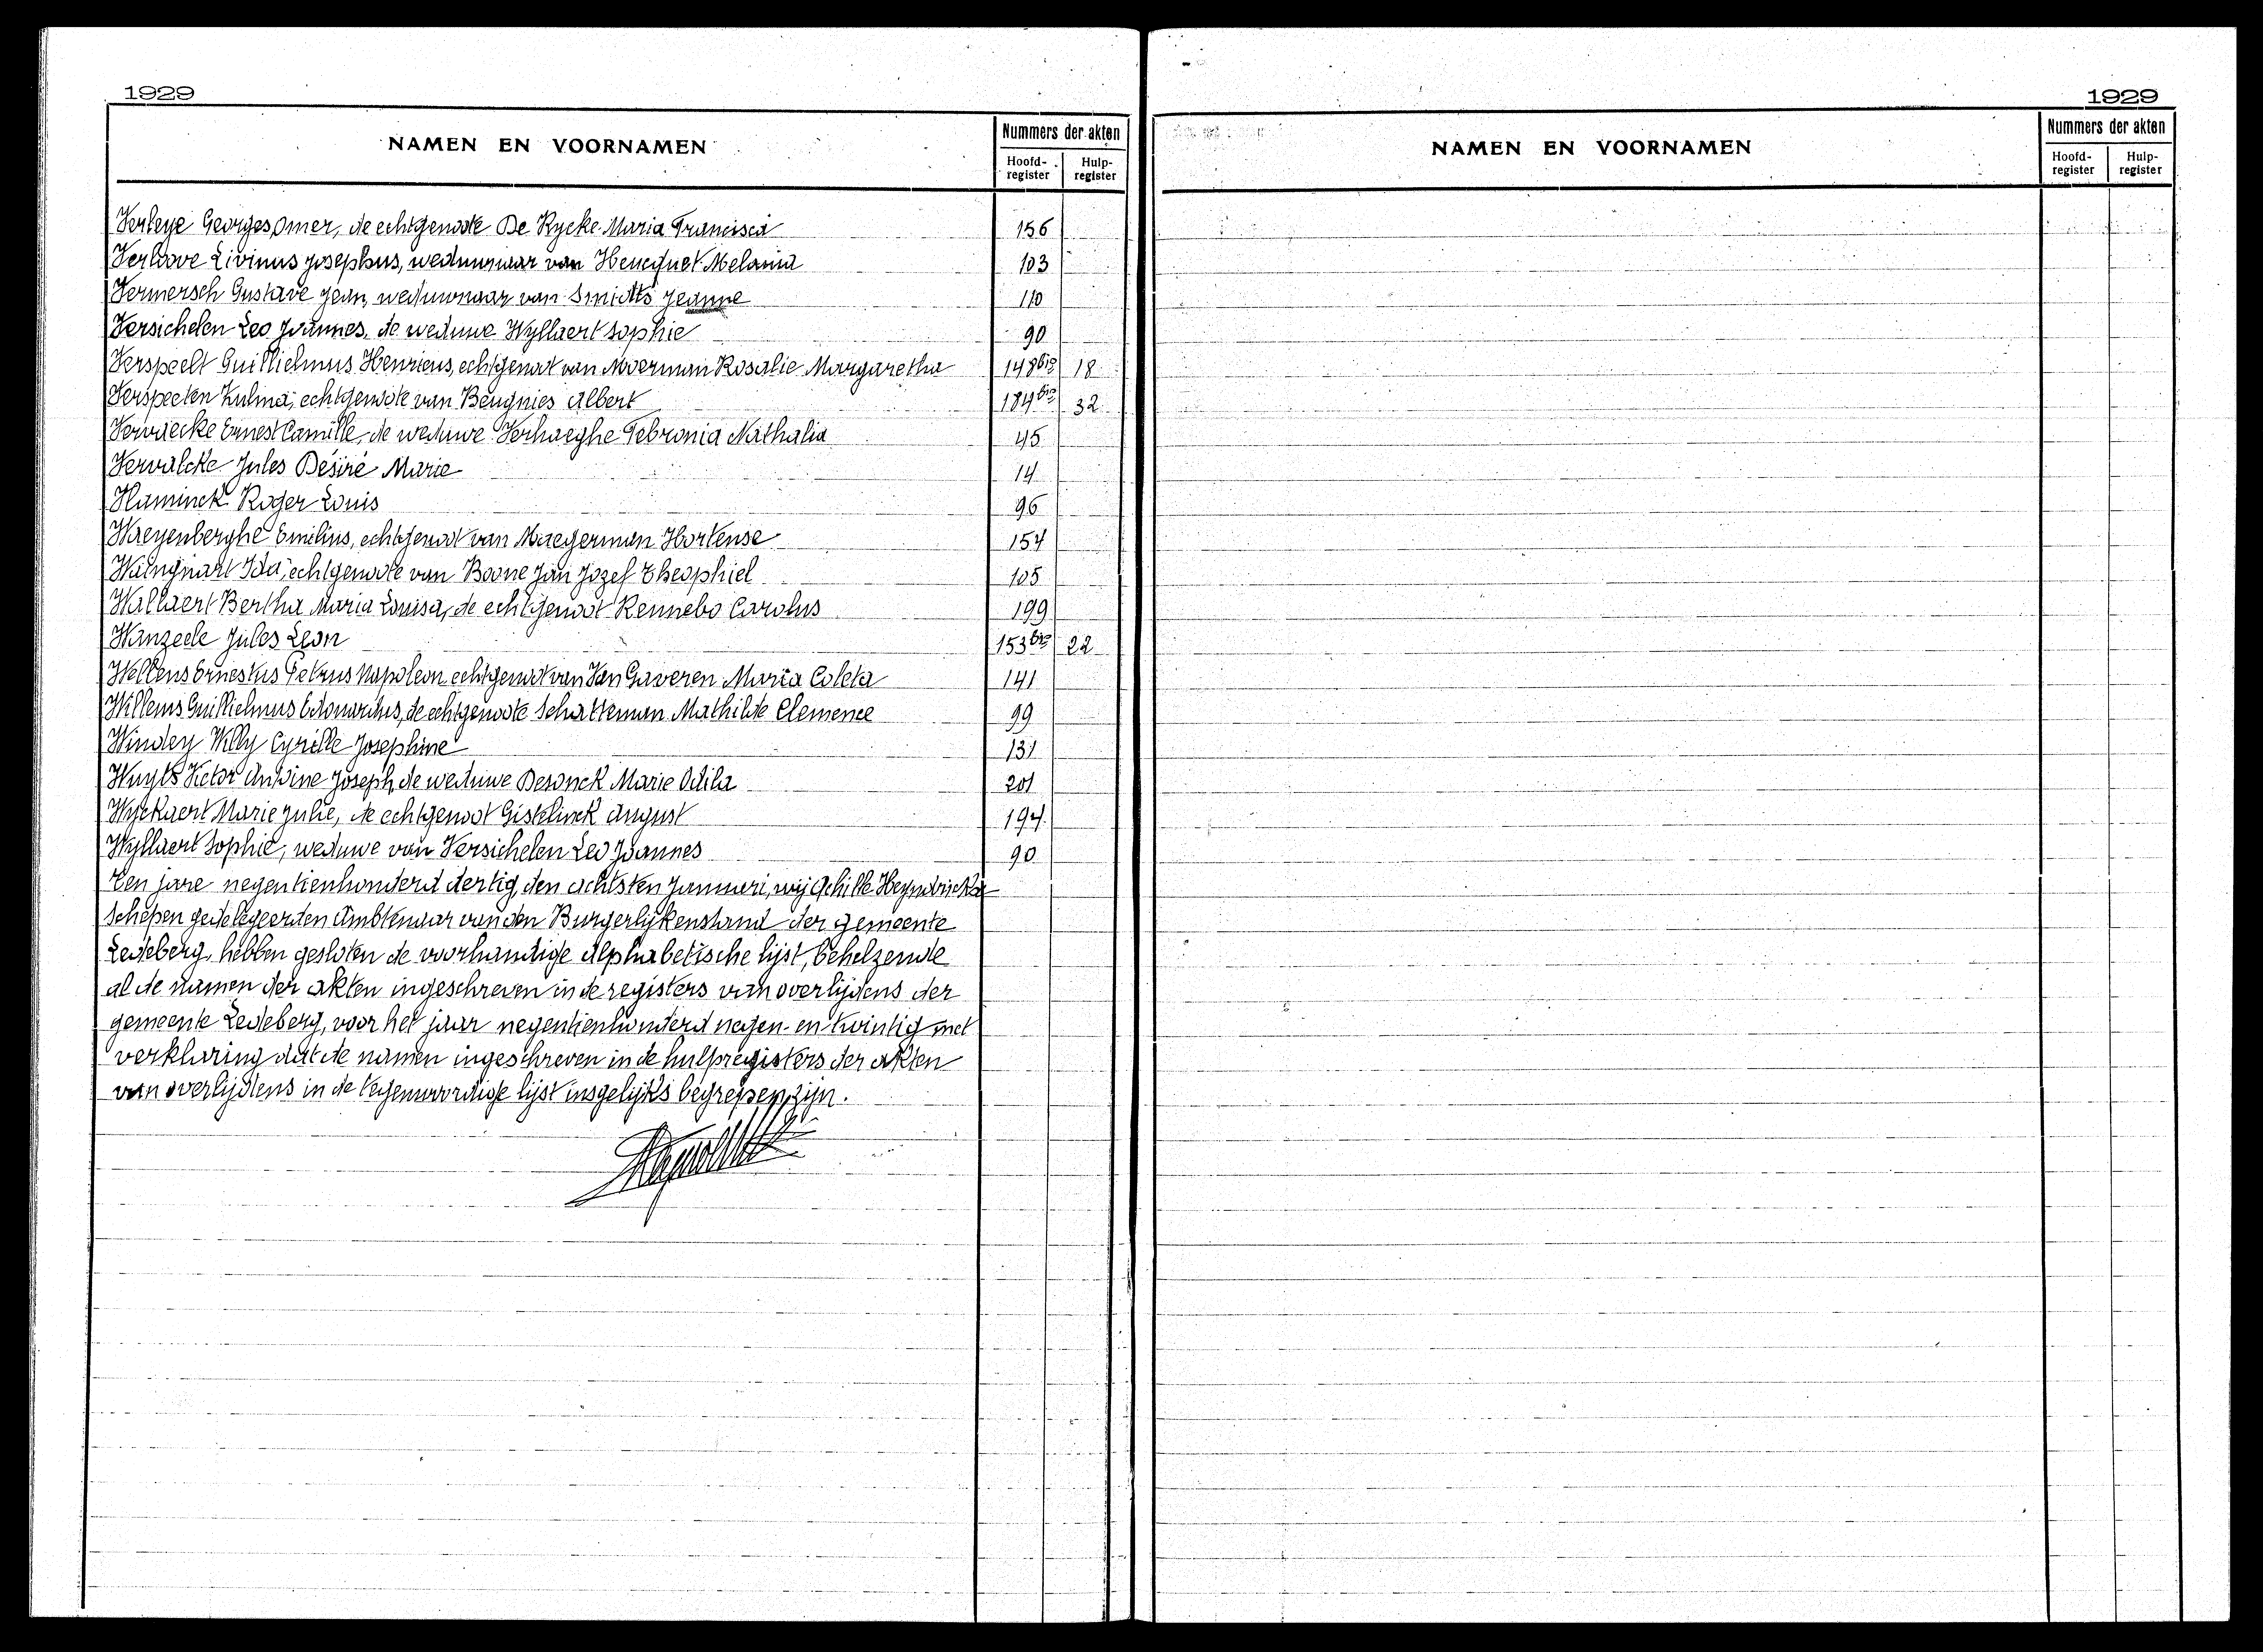 1929
NAMEN EN VOORNAMEN
Nummers der akten
Hoofd-register Hulp-register
Verleye Georges Omer, de echtgenoote De Rycke Maria Francisca 156
Verloove Livinus Josephus, weduwnaar van Henequet Melania 103
Vermersch Gustave Jean, weduwnaar van Smidts Jeanne 110
Versichelen Leo Joannes, de weduwe Wyllaert Sophie 90
Verspeelt Guillielmus Henricus, echtgenoot van Moerman Rosalie Margaretha 148bis 18
Verspeeten Zulma, echtgenoote van Beugnies Albert 184bis 32
Vervaecke Ernest Camille, de weduwe Verhaeghe Febronia Nathalia 45
Vervalcke Jules Désiré Marie 14
Vlaminck Roger Louis 96
Waeyenberghe Emilius, echtgenoot van Maegerman Hortense 154
Waingnart Ida, echtgenoote van Boone Jan Jozef Theophiel 105
Wallaert Bertha Maria Louisa, de echtgenoot Rennebo Carolus 199
Wanzeele Jules Leon 153bis 22
Wellens Ernestus Petrus Napoleon echtgenoot van Van Gaveren Maria Coleta 141
Willems Guillielmus Edouardus, de echtgenoote Schatteman Mathilde Clemence 99
Windey Willy Cyrille Josephine 131
Wuyts Victor Antoine Joseph, de weduwe Desonck Marie Odila 201
Wyckaert Marie Julie, de echtgenoot Gistelinck August 194
Wyllaert Sophie, weduwe van Versichelen Leo Joannes 90
Ten jare negentienhonderd dertig, den achtsten Januari, wij Achille Heyndrickx
Schepen gedelegeerden Ambtenaar van den Burgerlijkenstand der gemeente
Ledeberg, hebben gesloten de voorhandige Alphabetische lijst, behelzende
al de namen der akten ingeschreven in de registers van overlijdens der
gemeente Ledeberg, voor het jaar negentienhonderd negen-en-twintig met
verklaring dat de namen ingeschreven in de hulpregisters der akten
van overlijdens in de tegenwoordige lijst insgelijks begrepen zijn.
1929
NAMEN EN VOORNAMEN
Nummers der akten
Hoofd-register Hulp-register